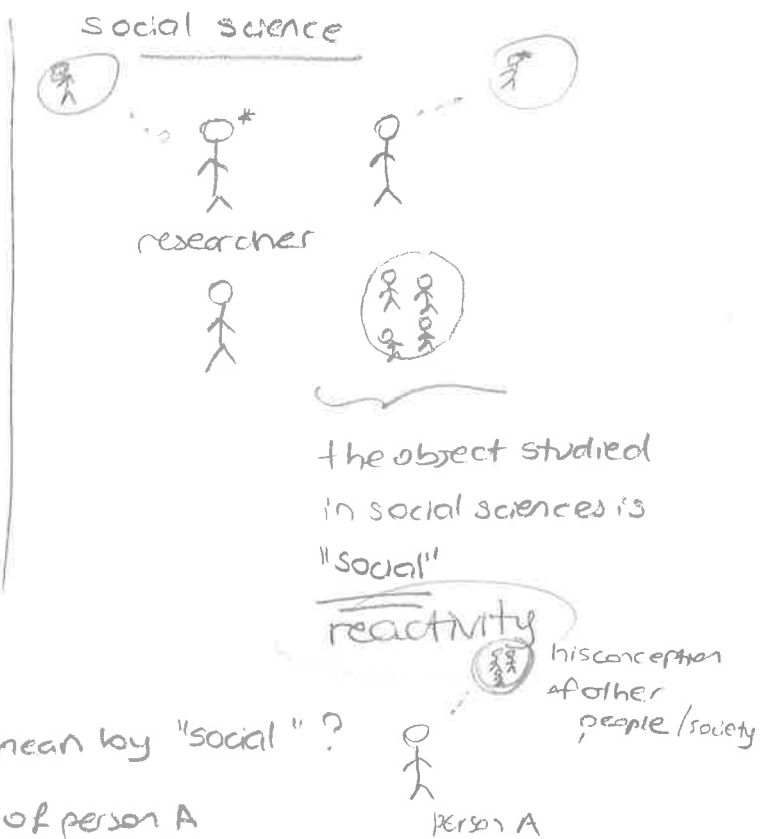 social science
*
researcher
the object studied
in social sciences is
"social"
reactivity
his conception
of other
people/society
mean by "social"?
of person A
person A